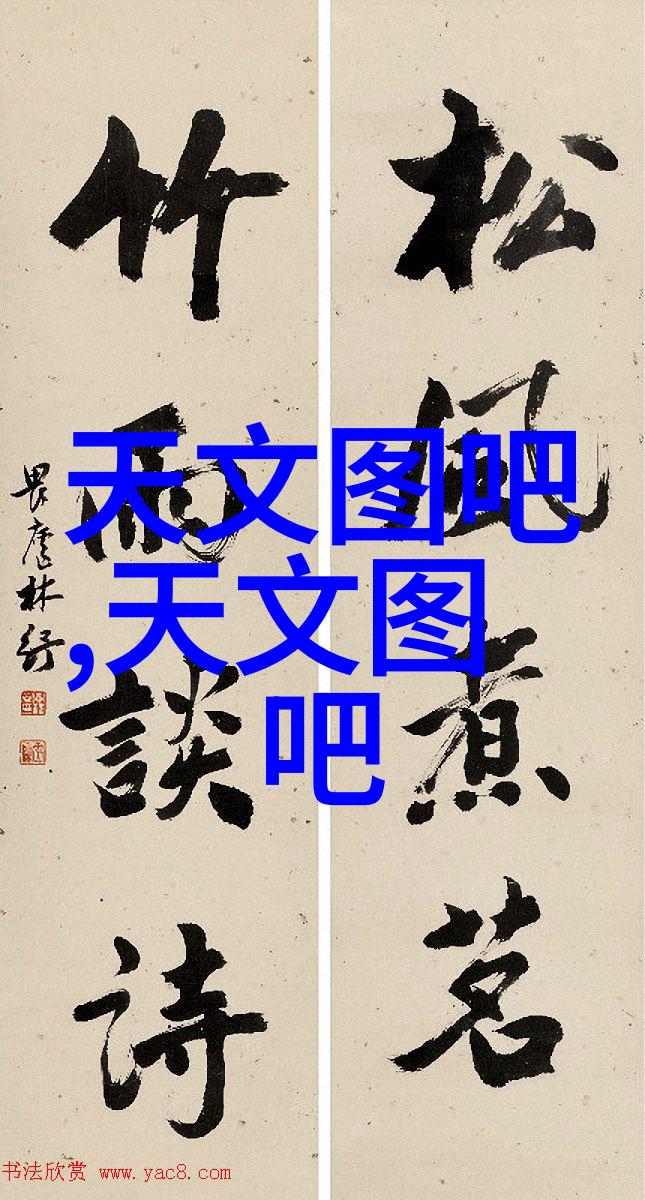 松風煮茗
竹雨談詩
畏廬林紓
天文图吧
,天文图
吧
书法欣赏 www.yac8.com